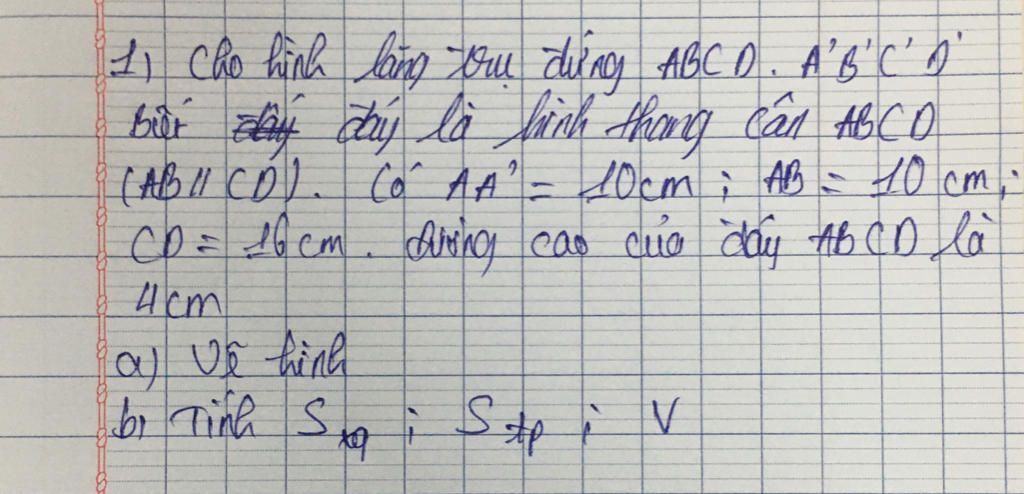 1, Cho hình lăng trụ đứng ABCD. A'B'C'D'
biết đáy là hình thang cân ABCD
(AB // CD). Có AA' = 10cm ; AB = 10 cm ;
CD = 16 cm. đường cao của đáy ABCD là
4cm
a) Vẽ hình
b) Tính Sxq ; Stp ; V